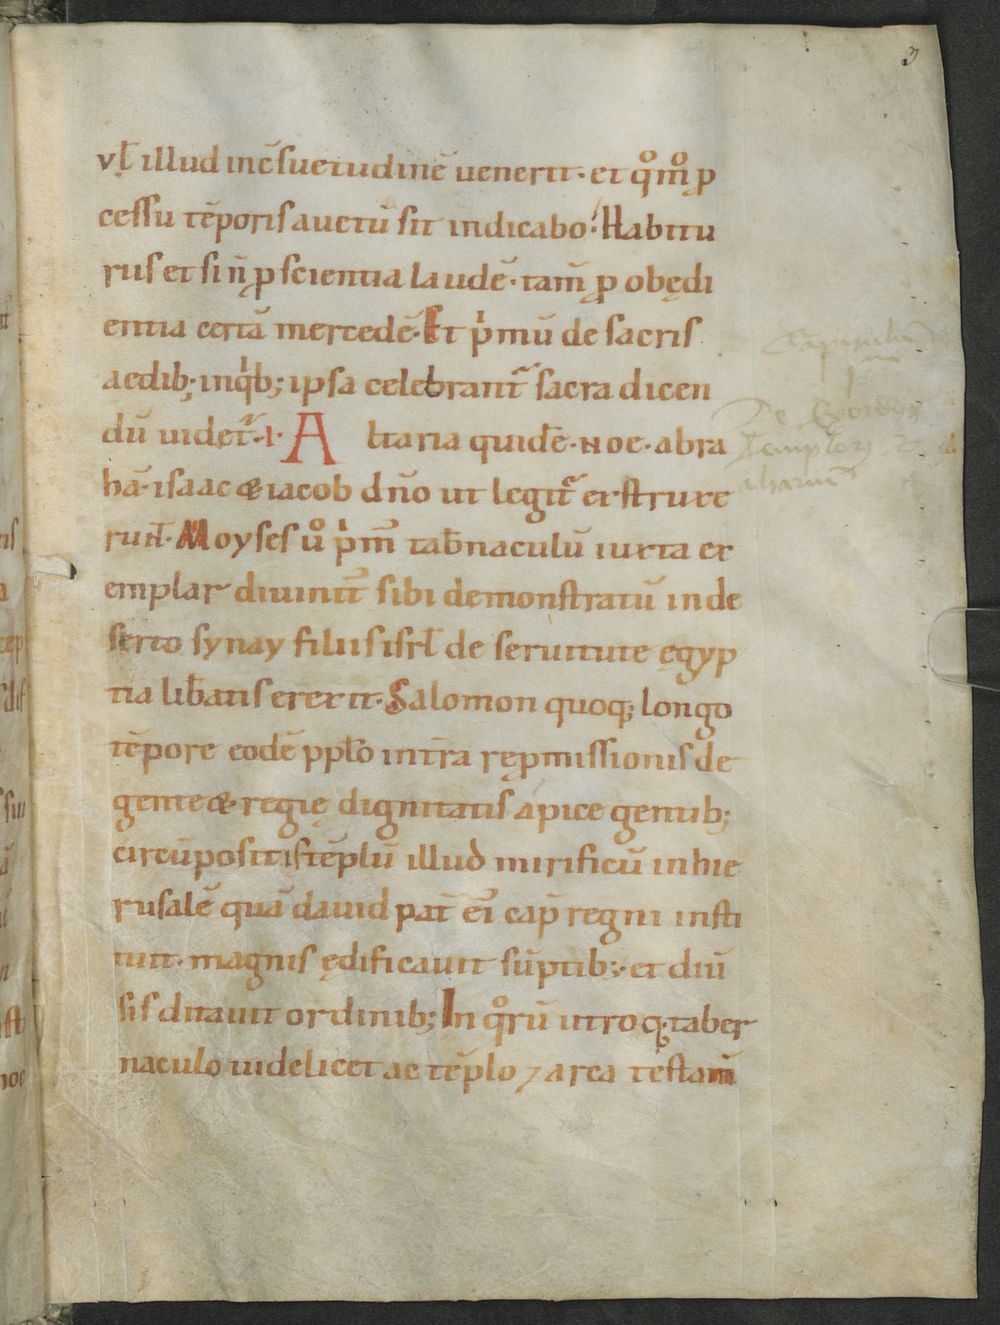 vł illud incsuetudinē uenerit · et qͦmͦ ꝓ
cessu tēporis auctū sit indicabo · Habitu
rus et si n̄ ꝓ scientia laudē · tam̄ ꝓ obędi
entia certā mercedē · Et p̍mū de sacris
aedib; inqͥb; ipsa celebrant᷑ sacra dicen
dū uidet᷑ · I · A ltaria quidē · Noe · abra
hā · isaac & iacob dn̄o ut legit᷑ exstruxe
run̄t · Moyses uͦ p̍m̄ tab̄naculū iuxta ex
emplar diuinit᷑ sibi demonstratū in de
serto synay filiis isrł de seruitute ęgyp
tia lib̄atis erexit · Salomon quoq; longo
tēpore eodē ppło intr̄a reꝓmissionis de
gente & regię dignitatis apice gentib;
circūpositis tēplū illud mirificū in hie
rusalē quā dauid pat̄ ei᷑ cap̄ regni insti
tuit · magnis ędificauit sūptib; · et diū
sis ditauit ordinib; In qͦrū utroq; taber
naculo uidelicet ac tēplo ⁊ arca testam̄